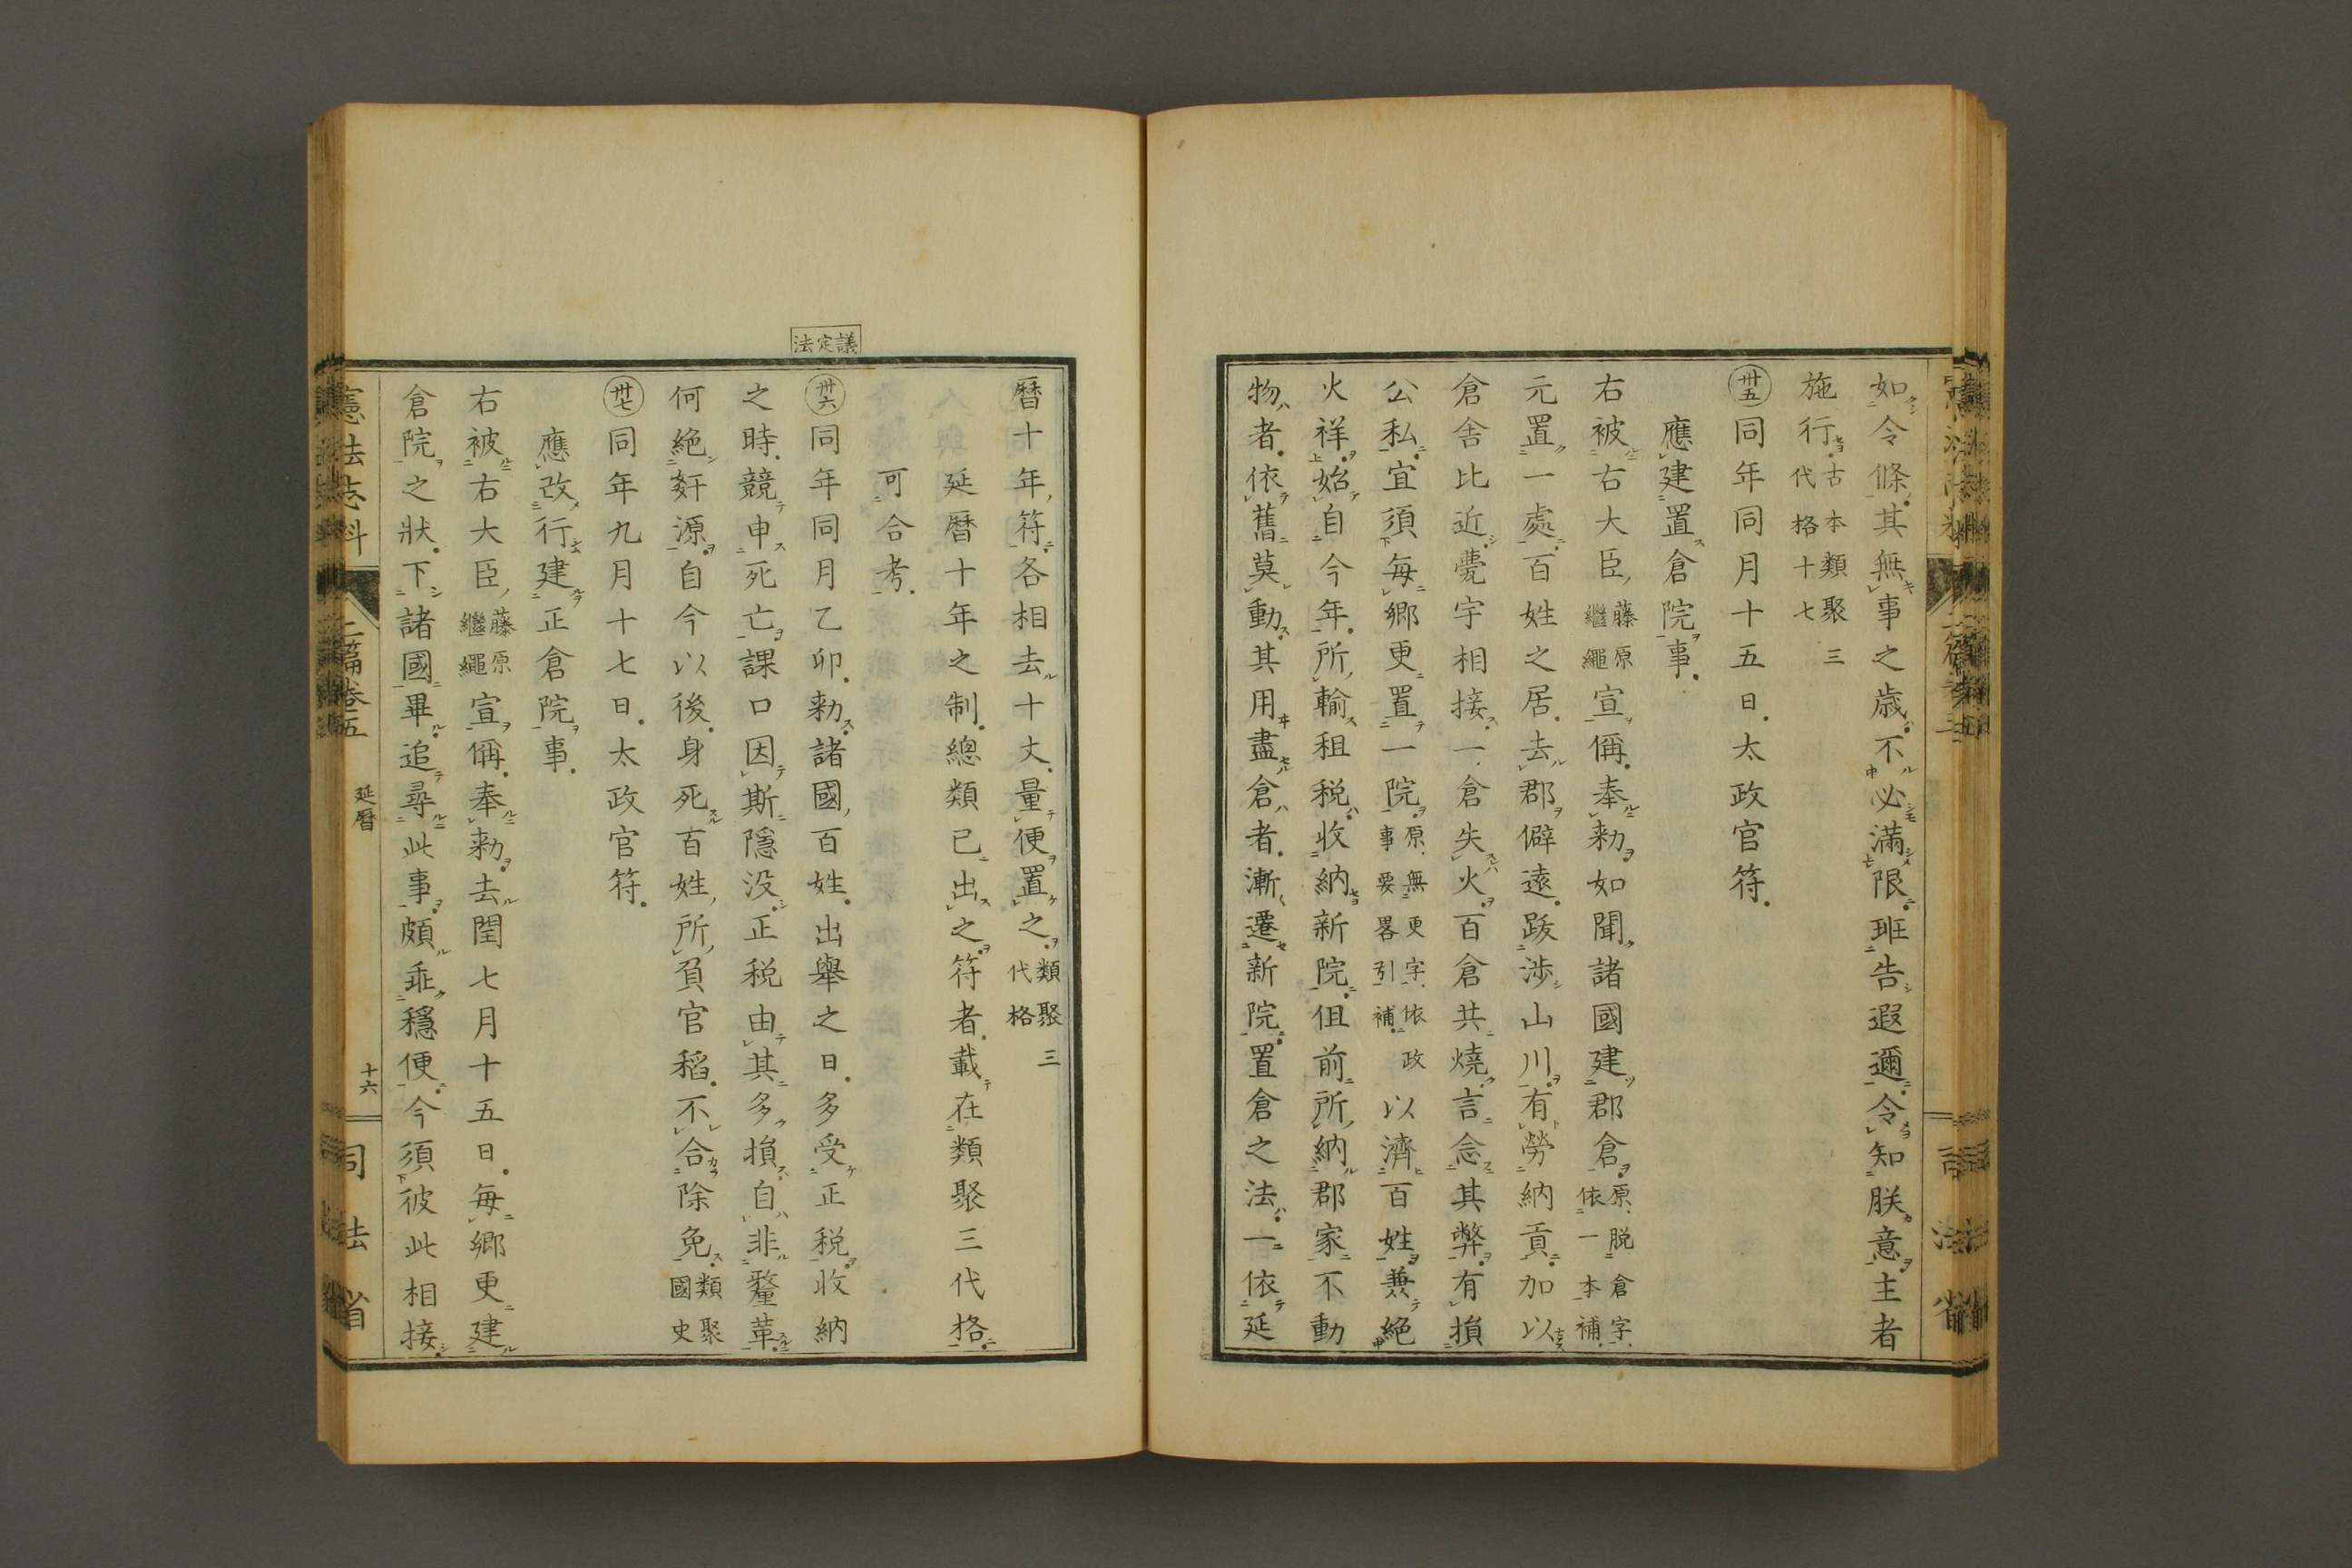 如令條其無事之歳不必滿限班告遐邇令知朕意主者
施行古本類聚三代格十七
卅五同年同月十五日太政官符
應建置倉院事
右被右大臣藤原繼繩宣偁奉勅如聞諸國建郡倉原脱倉字依一本補
元置一處百姓之居去郡僻遠跋涉山川有勞納貢加以
倉舍比近甍宇相接一倉失火百倉共燒言念其弊有損
公私宜須毎郷更置一院原無更字依政事要畧引補以濟百姓兼絶
火祥始自今年所輸租税收納新院但前所納郡家不動
物者依舊莫動其用盡倉者漸遷新院置倉之法一依延
曆十年符各相去十丈量便置之類聚三代格
延曆十年之制總類已出之符者載在類聚三代格
可合考
議定法
卅六同年同月乙卯勅諸國百姓出舉之日多受正税收納
之時競申死亡課口因斯隱没正税由其多損自非釐革
何絶姧源自今以後身死百姓所負官稻不合除免類聚國史
卅七同年九月十七日太政官符
應改行建正倉院事
右被右大臣藤原繼繩宣偁奉勅去閏七月十五日毎郷更建
倉院之狀下諸國畢追尋此事頗乖穩便今須彼此相接
憲法志料 二篇卷五 延曆 十六 司法省